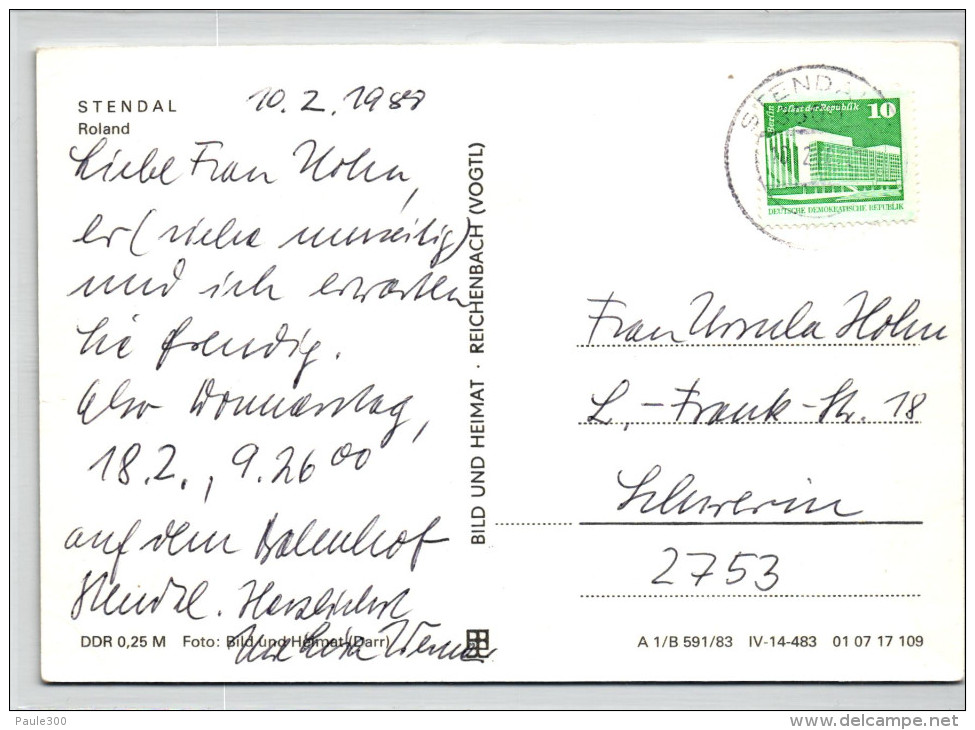 STENDAL
Roland
10.2.1988
Liebe Frau Holm,
er (siehe umseitig)
und ich erwarten
Sie freudig.
Also Donnerstag,
18.2., 9.26 00
auf dem Bahnhof
Stendal. Herzlichst
DDR 0,25 M Foto: Bild und Heimat (Darr)
BILD UND HEIMAT · REICHENBACH (VOGTL)
STENDAL
Berlin Palast der Republik 10
DEUTSCHE DEMOKRATISCHE REPUBLIK
Frau Ursula Holm
L.-Frank-Str. 18
Schwerin
2753
A 1/B 591/83 IV-14-483 01 07 17 109
Paule300
www.delcampe.net